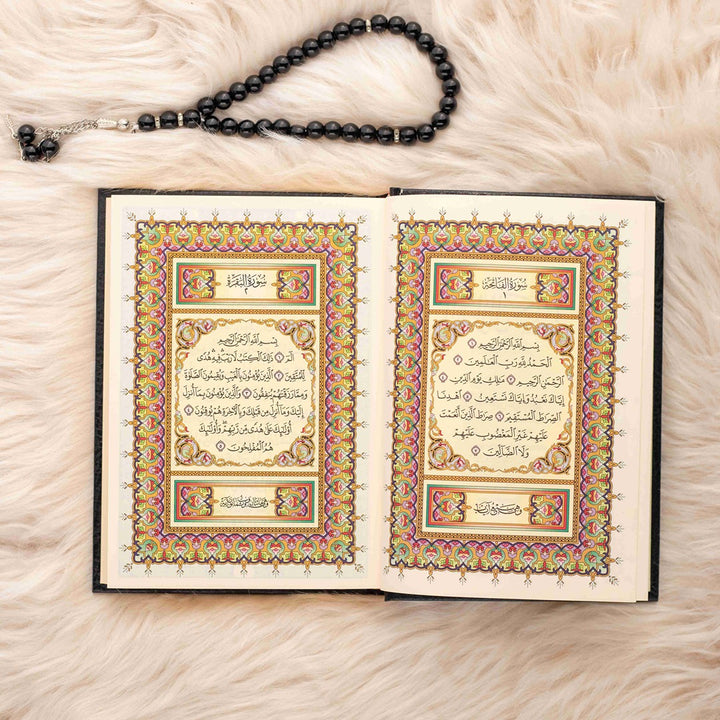 سُورَةُ الفَاتِحَة
١
بِسْمِ ٱللَّهِ ٱلرَّحْمَٰنِ ٱلرَّحِيمِ ١
ٱلْحَمْدُ لِلَّهِ رَبِّ ٱلْعَٰلَمِينَ ٢
ٱلرَّحْمَٰنِ ٱلرَّحِيمِ ٣ مَٰلِكِ يَوْمِ ٱلدِّينِ ٤
إِيَّاكَ نَعْبُدُ وَإِيَّاكَ نَسْتَعِينُ ٥ ٱهْدِنَا
ٱلصِّرَٰطَ ٱلْمُسْتَقِيمَ ٦ صِرَٰطَ ٱلَّذِينَ أَنْعَمْتَ
عَلَيْهِمْ غَيْرِ ٱلْمَغْضُوبِ عَلَيْهِمْ
وَلَا ٱلضَّآلِّينَ ٧
سُورَةُ البَقَرَة
٢
بِسْمِ ٱللَّهِ ٱلرَّحْمَٰنِ ٱلرَّحِيمِ
الٓمٓ ١ ذَٰلِكَ ٱلْكِتَٰبُ لَا رَيْبَ فِيهِ هُدًى
لِّلْمُتَّقِينَ ٢ ٱلَّذِينَ يُؤْمِنُونَ بِٱلْغَيْبِ وَيُقِيمُونَ ٱلصَّلَوٰةَ
وَمِمَّا رَزَقْنَٰهُمْ يُنفِقُونَ ٣ وَٱلَّذِينَ يُؤْمِنُونَ بِمَآ أُنزِلَ
إِلَيْكَ وَمَآ أُنزِلَ مِن قَبْلِكَ وَبِٱلْءَاخِرَةِ هُمْ يُوقِنُونَ ٤
أُو۟لَٰٓئِكَ عَلَىٰ هُدًى مِّن رَّبِّهِمْ وَأُو۟لَٰٓئِكَ
هُمُ ٱلْمُفْلِحُونَ ٥